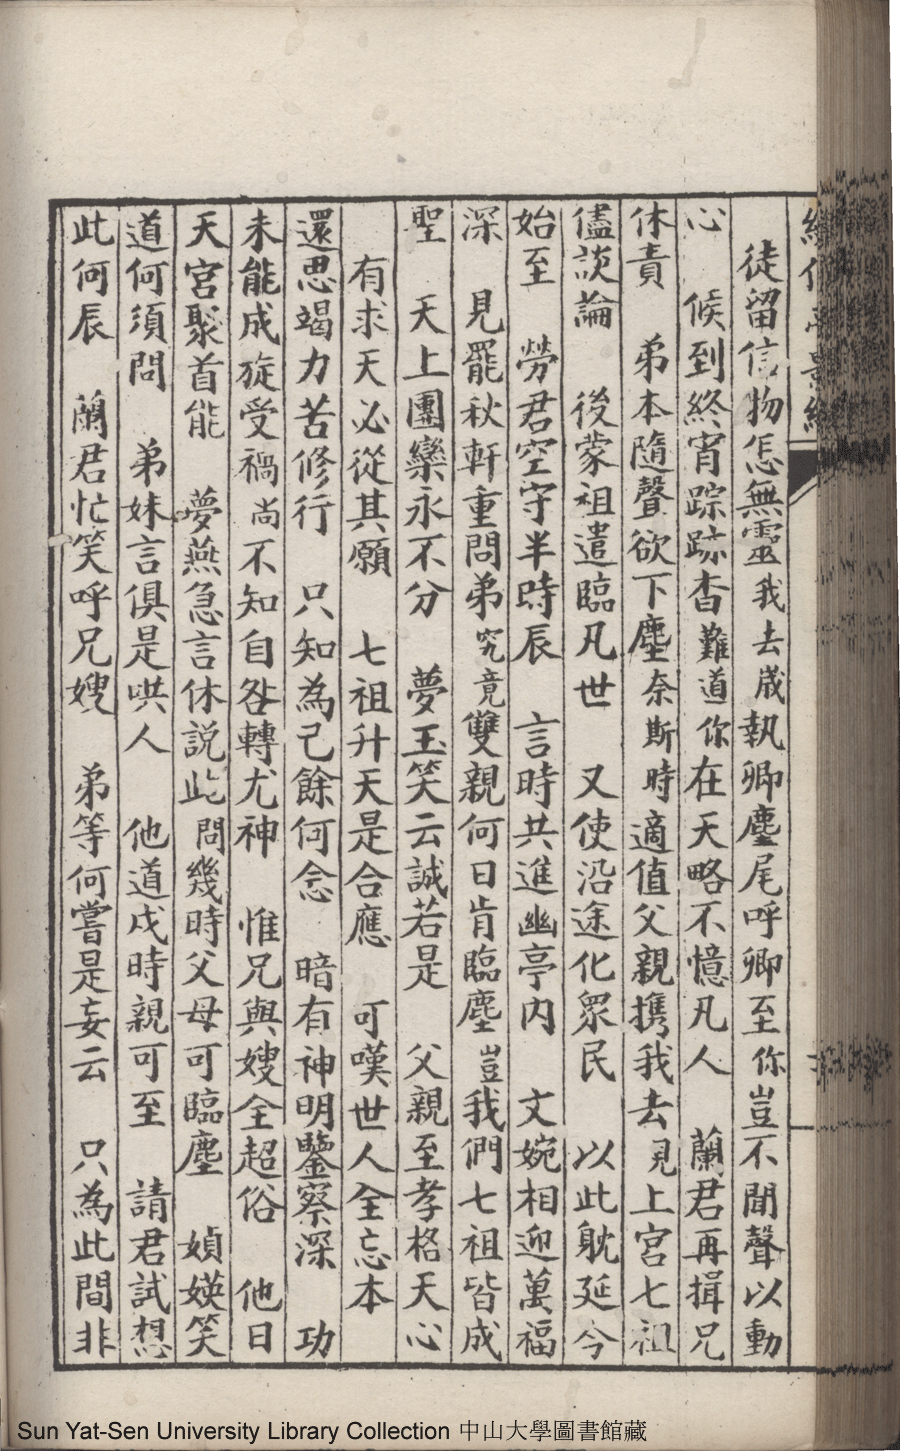 徒留信物怎無靈我去歲執卿麈尾呼卿至你豈不聞聲以動
心　候到終宵踪跡杳難道你在天略不憶凡人　蘭君再揖兄
休責　弟本隨聲欲下塵奈斯時適值父親携我去見上宮七祖
儘談論　後蒙祖遣臨凡世　又使沿途化眾民　以此躭延今
始至　勞君空守半時辰　言時共進幽亭內　文婉相迎萬福
深　見罷秋軒重問弟究竟雙親何日肯臨塵豈我們七祖皆成
聖　天上團欒永不分　夢玉笑云誠若是　父親至孝格天心
有求天必從其願　七祖升天是合應　可嘆世人全忘本
還思竭力苦修行　只知為己餘何念　暗有神明鑒察深　功
未能成旋受禍尚不知自咎轉尤神　惟兄與嫂全超俗　他日
天宮聚首能　夢燕急言休説此問幾時父母可臨塵　媜媖笑
道何須問　弟妹言俱是哄人　他道戌時親可至　請君試想
此何辰　蘭君忙笑呼兄嫂　弟等何嘗是妄云　只為此間非
Sun Yat-Sen University Library Collection 中山大學圖書館藏